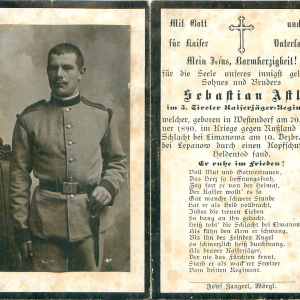 Mit Gott
und
für Kaiser
Vaterla
Mein Jesus, Barmherzigkeit!
für die Seele unseres innigst gel
Sohnes und Bruders
Sebastian Astl
im 3. Tiroler Kaiserjäger-Regim
welcher, geboren in Westendorf am 20.
ner 1890, im Kriege gegen Rußland
Schlacht bei Limanowa am 10. Dezbr.
bei Lepanow durch einen Kopfschuß
Heldentod fand.
Er ruhe im Frieden!
Voll Mut und Gottvertrauen,
Das Herz so hoffnungsfroh,
Zog fort er von der Heimat,
Der Kaiser wollt' es so
Gar manche schwere Stunde
Hat er als Held vollbracht,
Indes die treuen Lieben
So bang an ihn gedacht,
Heiß tobt' die Schlacht bei Limano
Als kühn den Arm er schwang,
Bis ihn des Feindes Kugel
So schmerzlich heiß durchdrang.
Als braver Kaiserjäger,
Der nie das Fürchten kennt,
Starb er als wack'rer Streiter
Vom dritten Regiment.
Josef Zangerl, Wörgl.